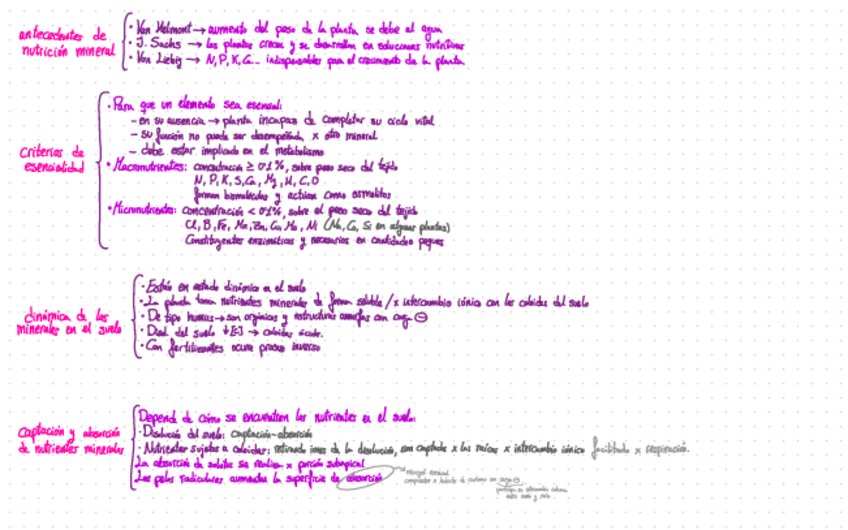 antecedentes de nutrición mineral
· Van Helmont → aumento del peso de la planta se debe al agua
· J. Sachs → las plantas crecen y se desarrollan en soluciones nutritivas
· Von Liebig → N, P, K, Ca... indispensables para el crecimiento de la planta
Criterios de esencialidad
· Para que un elemento sea esencial:
- en su ausencia → planta incapaz de completar su ciclo vital
- su función no puede ser desempeñada x otro mineral
- debe estar implicado en el metabolismo
· Macronutrientes: concentración ≥ 0'1%, sobre peso seco del tejido
N, P, K, S, Ca, Mg, H, C, O
forman biomoléculas y actúan como osmolitos
· Micronutrientes: concentración < 0'1%, sobre el peso seco del tejido
Cl, B, Fe, Mn, Zn, Cu, Mo, Ni (Na, Co, Si en algunas plantas)
Constituyentes enzimáticos y necesarios en cantidades peques
dinámica de los minerales en el suelo
· Están en estado dinámico en el suelo
· La planta toma nutrientes minerales de forma soluble / x intercambio iónico con los coloides del suelo
· De tipo humus → son orgánicos y estructuras amorfas con carga ⊖
· Disol. del suelo ↓[c] → coloides ceden.
· Con fertilizantes ocurre proceso inverso
Captación y absorción de nutrientes minerales
Depende de cómo se encuentren los nutrientes en el suelo:
· Disolución del suelo: captación-absorción
· Nutrientes sujetos a coloides: retirando iones de la disolución, son captados x las raíces x intercambio iónico facilitado x respiración.
La absorción de solutos se realiza x porción subapical
Los pelos radiculares aumentan la superficie de absorción